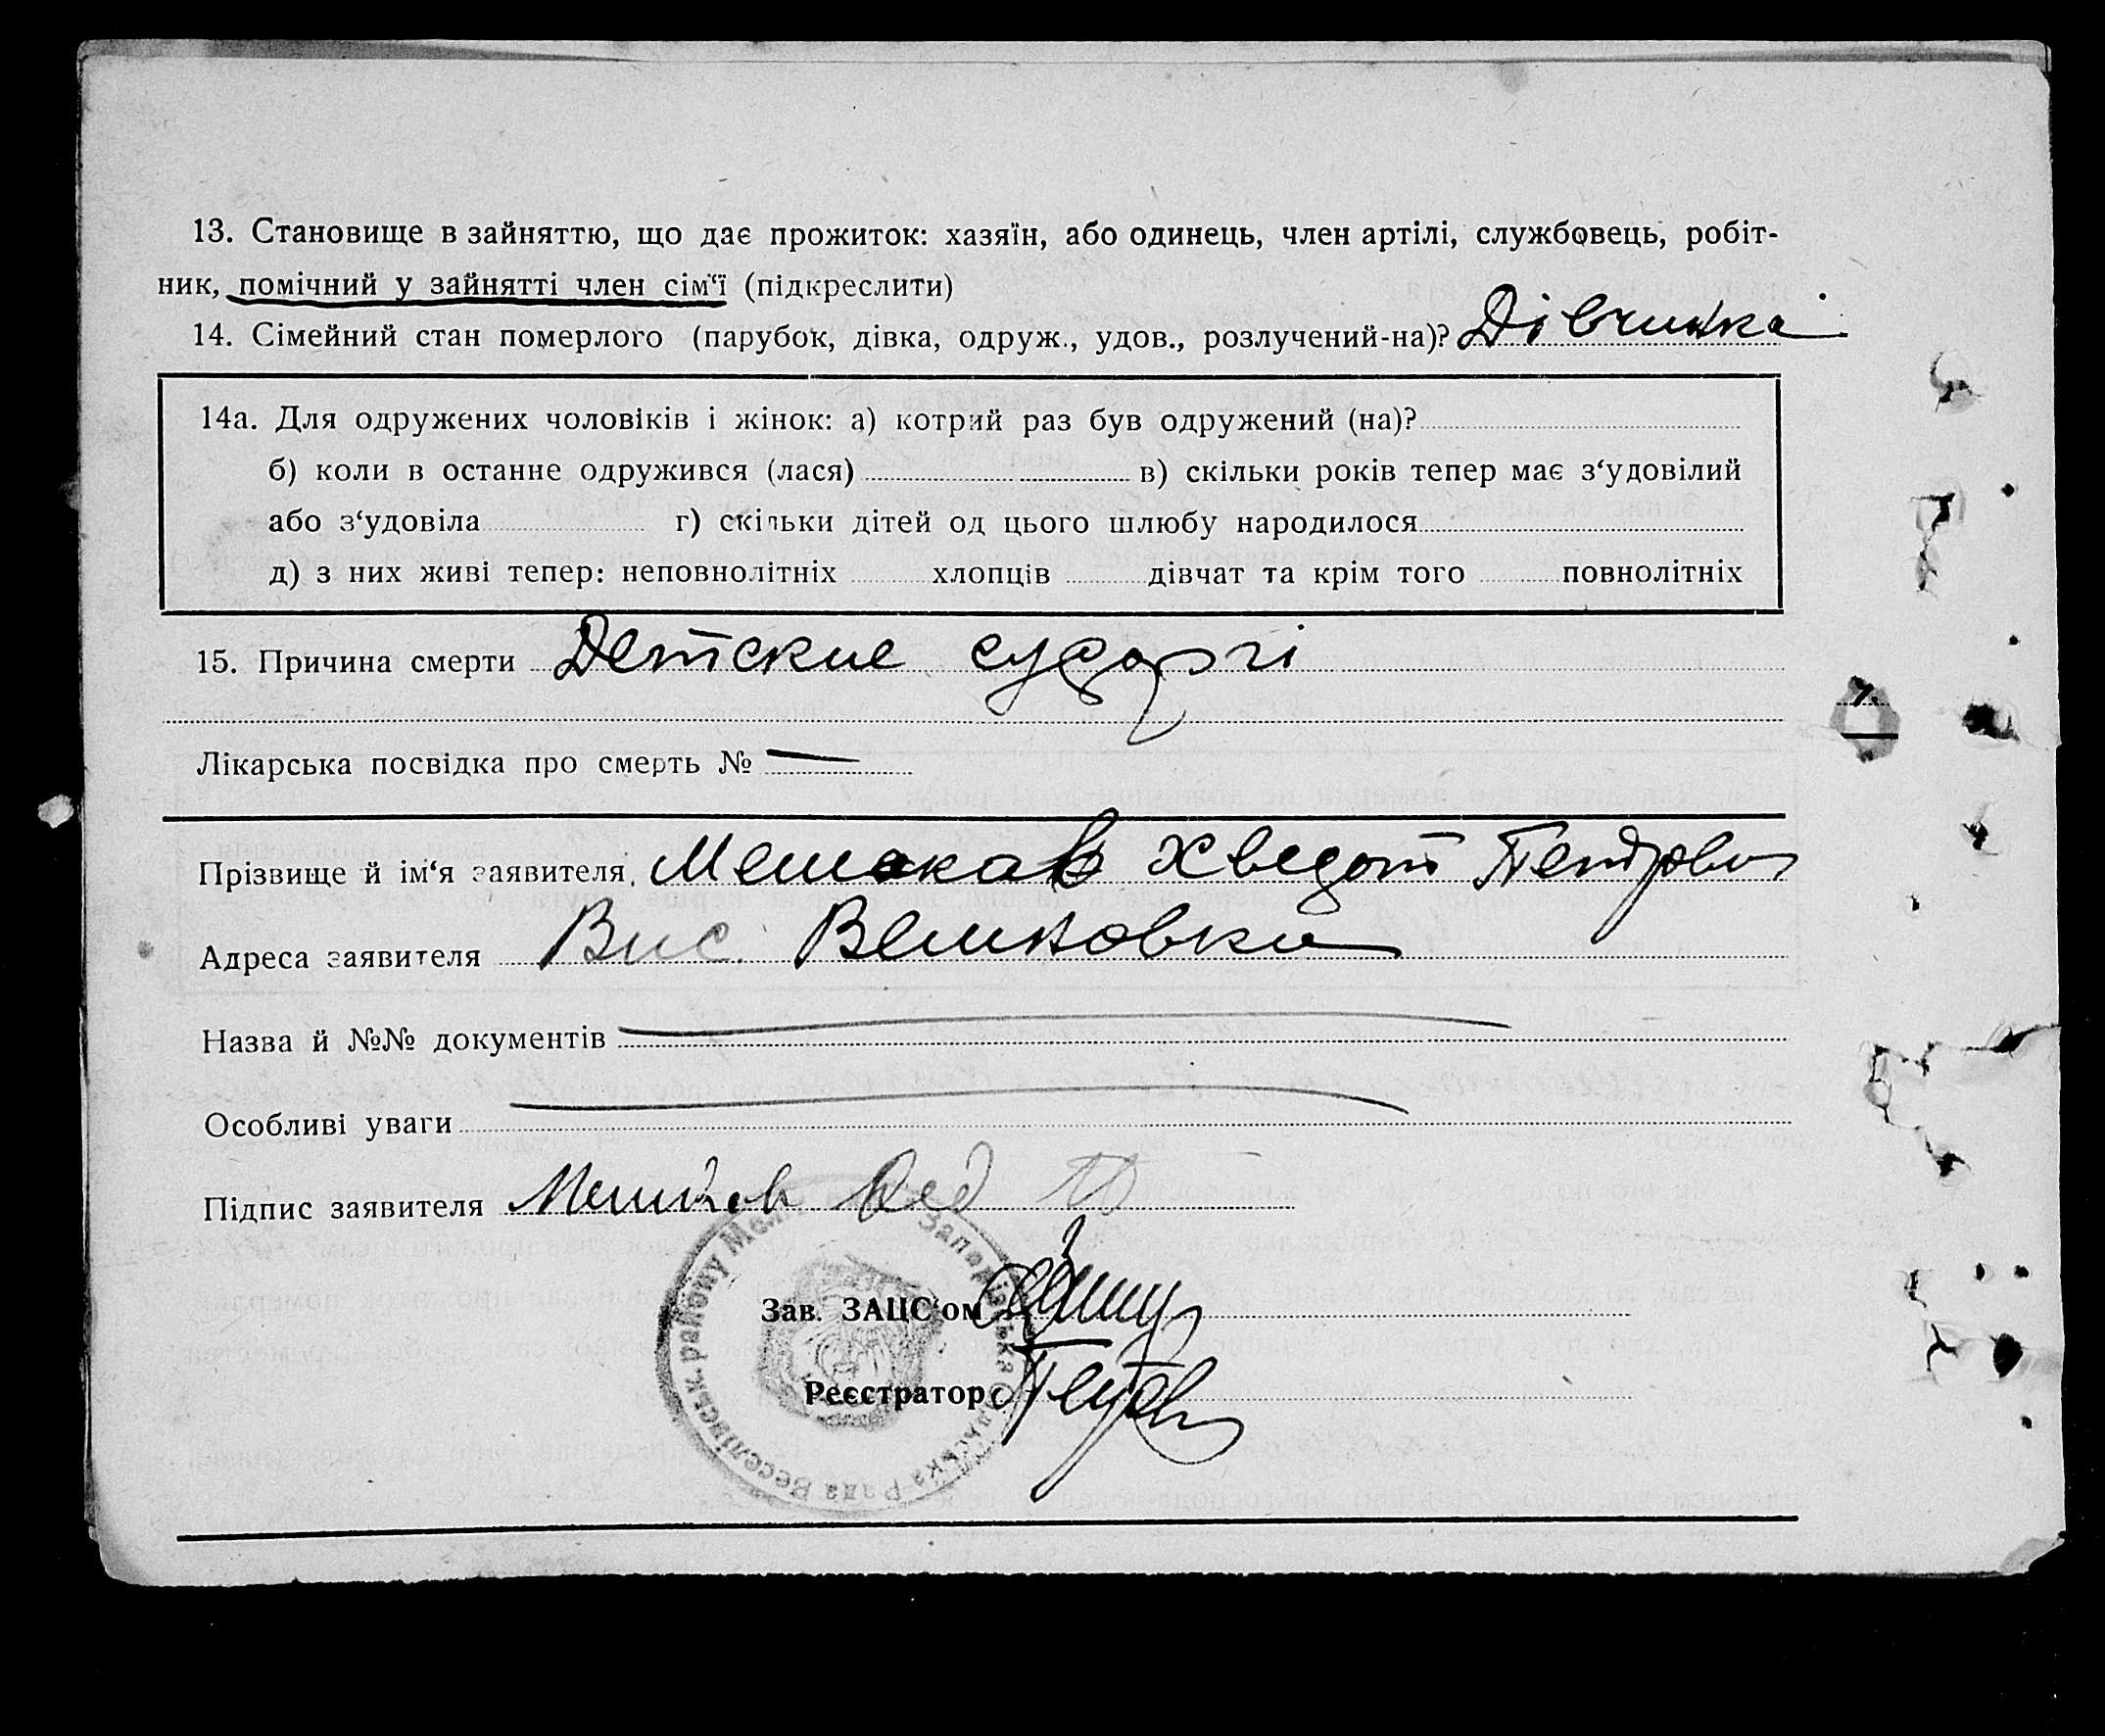 13. Становище в зайняттю, що дає прожиток: хазяїн, або одинець, член артілі, службовець, робіт-
ник, помічний у зайнятті член сім‘ї (підкреслити)
14. Сімейний стан померлого (парубок, дівка, одруж., удов., розлучений-на)? Дівчинка
14а. Для одружених чоловіків і жінок: а) котрий раз був одружений (на)?
б) коли в останнє одружився (лася) в) скільки років тепер має з‘удовілий
або з‘удовіла г) скільки дітей од цього шлюбу народилося
д) з них живі тепер: неповнолітніх хлопців дівчат та крім того повнолітніх
15. Причина смерти Детские судоргі
7.
Лікарська посвідка про смерть № —
Прізвище й ім‘я заявителя Хведот Петрович
Адреса заявителя Вис.
Назва й №№ документів
Особливі уваги
Підпис заявителя Мешков Фед П
Зав. ЗАЦС‘ом
Реєстратор
Заподівська Сільська Рада Веселівськ. району Мел